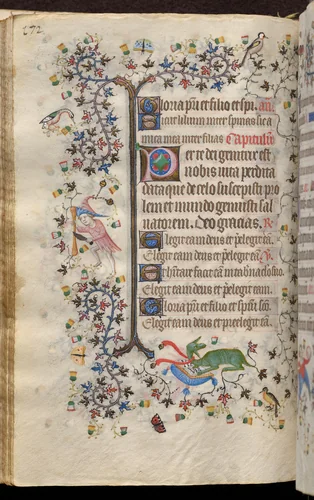 272
Gloria p̃ri et filio et sp̃i. añ
Sicut lilium inter spinas sic a
mica mea inter filias Capitulũ
Per te dei genitrix est
nobis vita perdita
data que de celo suscepisti p̃
lem et mundo genuisti sal
uatorem. Deo gracias. R̃
Elegit eam deus et p̃elegit eã.
Elegit eam deus et p̃elegit eã. ℣
Et habitare facit eam in tabernaclo suo
Elegit eam deus et p̃elegit eam.
Gloria p̃ri et filio et sp̃ui sc̃o.
Elegit eam deus et preelegit eã.